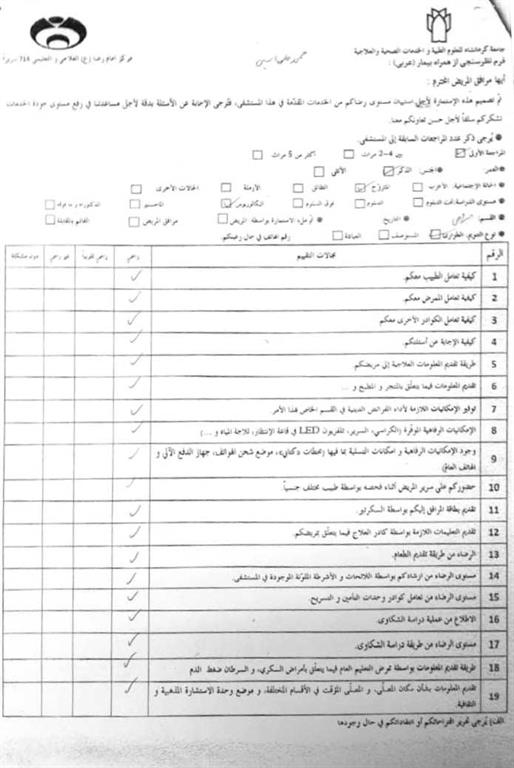 جامعة كرمانشاه للعلوم الطبية و الخدمات الصحية والعلاجية
فرم نظرسنجی از همراه بیمار (عربی) :
مركز امام رضا (ع) العلاجي و التعليمي 714 سريراً
أيها مرافق المريض المحترم :
تم تصميم هذه الإستمارة لأجل استبيان مستوى رضاكم من الخدمات المقدّمة في هذا المستشفى، فنُرجى الإجابة عن الأسئلة بدقة لأجل مساعدتنا في رفع مستوى جودة الخدمات
نشكركم سلفاً لأجل حسن تعاونكم معنا.
يُرجى ذكر عدد المراجعات السابقة إلى المستشفى.
المراجعة الأولى 2-4 مرات أكثر من 5 مرات
العمر: الجنس: الذكر الأنثى
الحالة الإجتماعية: الأعزب المتزوج الطالق الأرملة الحالات الأخرى
مستوى الدراسة: تحت الدبلوم الدبلوم فوق الدبلوم البكالوريوس الماجستير الدكتوراه و ما فوقه
القسم: التاريخ تم ملء الاستمارة بواسطة: المريض مرافق المريض القائم بالمقابلة
نوع التنويم: الطوارئ المستوصف العيادة رقم الهاتف في حال رضاكم.
الرقم مجالات التقييم راضي راضي تقريباً غير راضي دون مشكلة
1 كيفية تعامل الطبيب معكم.
2 كيفية تعامل الممرض معكم.
3 كيفية تعامل الكوادر الأخرى معكم.
4 كيفية الإجابة عن أسئلتكم.
5 طريقة تقديم المعلومات العلاجية إلى مريضكم.
6 تقديم المعلومات فيما يتعلّق بالمتجر و المطبخ و ...
7 توفير الإمكانيات اللازمة لأداء الفرائض الدينية في القسم الخاص لهذا الأمر.
8 الإمكانيات الرفاهية الموفّرة (الكراسي، السرير، تلفزيون LED في قاعة الإنتظار، ثلاجة المياه و ...)
9 وجود الإمكانيات الرفاهية و امكانات التسلية بما فيها موضع شحن الهواتف، جهاز الدفع الآلي و
الهاتف العام)
10 حضوركم على سرير المريض أثناء فحصه بواسطة طبيب مختلف جنسياً
11 تقديم بطاقة المرافق إليكم بواسطة السكرتير.
12 تقديم التعليمات اللازمة بواسطة كادر العلاج فيما يتعلّق بمريضكم.
13 الرضاء من طريقة تقديم الطعام.
14 مستوى الرضاء من ارشادكم بواسطة اللافتات و الأشرطة الملوّنة الموجودة في المستشفى.
15 مستوى الرضاء من تعامل كوادر وحدات التأمين و التسريح.
16 الاطلاع من عملية دراسة الشكاوى.
17 مستوى الرضاء من طريقة دراسة الشكاوى.
18 طريقة تقديم المعلومات بواسطة ممرض التعليم العام فيما يتعلّق بأمراض السكري، و السرطان ضغط الدم
19 تقديم المعلومات بشأن مكان المصلّى، و المصلّى المؤقت في الأقسام المختلفة، و موضع وحدة الاستشارة المذهبية و
الثقافية.
الف) يُرجى تحرير اقتراحاتكم أو انتقاداتكم في حال وجودها